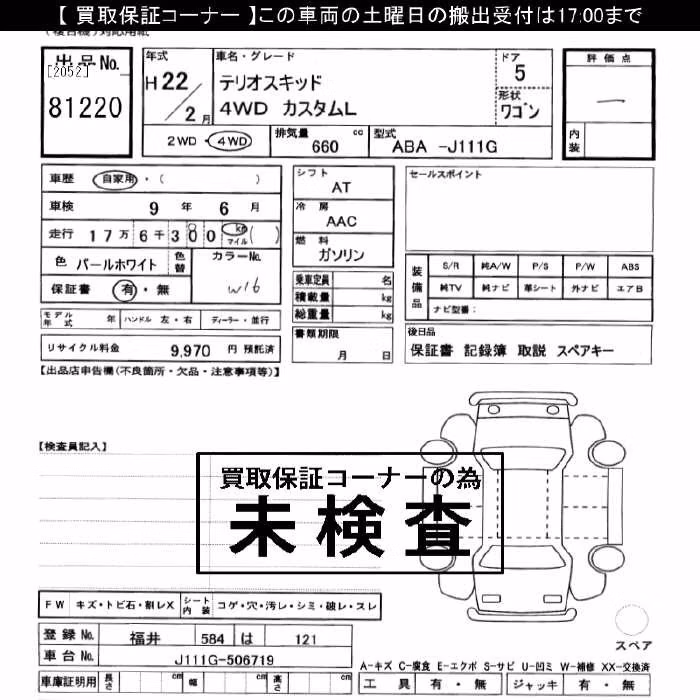 【 買取保証コーナー 】この車両の土曜日の搬出受付は17:00まで
出品No.
[2052]
81220
年式
H 22/2月
車名・グレード
テリオスキッド
4WD カスタムL
ドア
5
形状
ワゴン
評価点
一
内装
2WD・4WD
排気量
660 cc
型式
ABA -J111G
車歴 自家用・( )
車検 9年 6月
走行 17万6千300 km マイル ( )
色 パールホワイト 色替
カラーNo.
W16
保証書 有・無
シフト
AT
冷房
AAC
燃料
ガソリン
乗車定員 名
積載量 kg
総重量 kg
セールスポイント
装備品
S/R 純A/W P/S P/W ABS
純TV 純ナビ 革シート 外ナビ エアB
ナビ型番:
モデル年式 年 ハンドル 左・右 ディーラー・並行
リサイクル料金 9,970 円 預託済
書類期限
月 日
後日品
保証書 記録簿 取説 スペアキー
【出品店申告欄(不良箇所・欠品・注意事項等)】
【検査員記入】
買取保証コーナーの為
未検査
FW キズ・トビ石・割レX シート内装 コゲ・穴・汚レ・シミ・破レ・スレ
登録No. 福井 584 は 121
車台No. J111G-506719
車庫証明用 長さ cm 幅 cm 高さ cm
スペア
A-キズ C-腐食 E-エクボ S-サビ U-凹ミ W-補修 XX-交換済
工具 有・無 ジャッキ 有・無